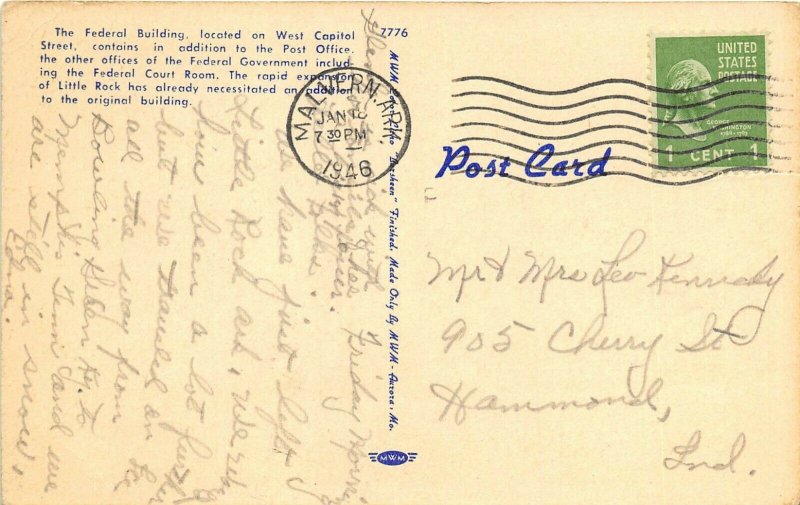 The Federal Building, located on West Capitol
Street, contains in addition to the Post Office,
the other offices of the Federal Government includ-
ing the Federal Court Room. The rapid expansion
of Little Rock has already necessitated an addition
to the original building.
7776
MALVERN, ARK
JAN 18
7 30 PM
1946
UNITED
STATES
POSTAGE
GEORGE
WASHINGTON
1789-1797
1 CENT 1
Post Card
Finished, Made Only By MWM - Aurora, Mo.
MWM
Mr & Mrs Leo Kennedy
905 Cherry St
Hammond,
Ind.
Friday Morning
have just left
Little Rock ark, We
have been a lot
but we traveled on
all the way from
Bowling Green Ky. to
Memphis Tenn and we
are still in snow.
Edna.